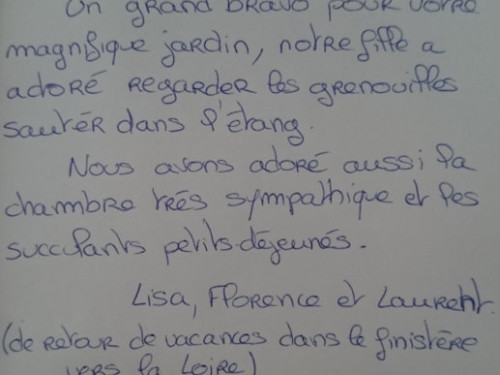 Un grand bravo pour votre
magnifique jardin, notre fille a
adoré regarder les grenouilles
sautér dans l'étang.
Nous avons adoré aussi la
chambre trés sympathique et les
succulants petits-déjeunés.
Lisa, Florence et Laurent.
(de retour de vacances dans le finistère
vers la Loire)